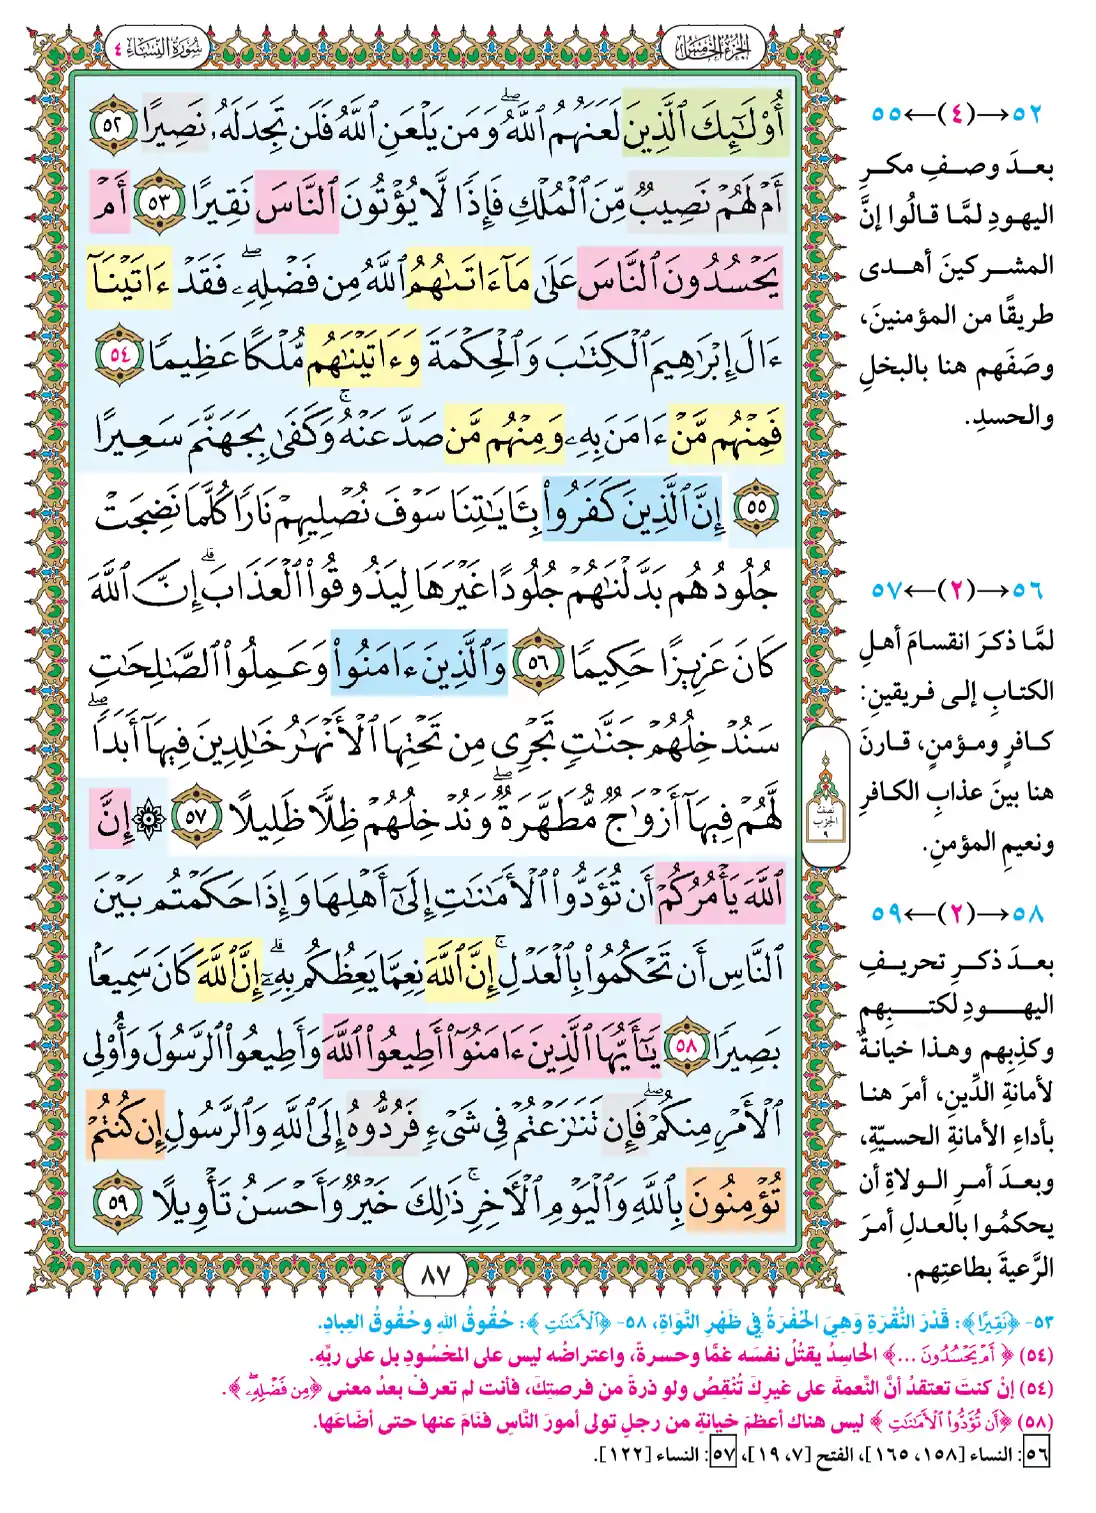 الجزء الخامس
سورة النساء ٤
أُوْلَٰٓئِكَ ٱلَّذِينَ لَعَنَهُمُ ٱللَّهُۖ وَمَن يَلْعَنِ ٱللَّهُ فَلَن تَجِدَ لَهُۥ نَصِيرًا ٥٢
أَمْ لَهُمْ نَصِيبٌ مِّنَ ٱلْمُلْكِ فَإِذًا لَّا يُؤْتُونَ ٱلنَّاسَ نَقِيرًا ٥٣ أَمْ
يَحْسُدُونَ ٱلنَّاسَ عَلَىٰ مَآ ءَاتَىٰهُمُ ٱللَّهُ مِن فَضْلِهِۦۖ فَقَدْ ءَاتَيْنَآ
ءَالَ إِبْرَٰهِيمَ ٱلْكِتَٰبَ وَٱلْحِكْمَةَ وَءَاتَيْنَٰهُم مُّلْكًا عَظِيمًا ٥٤
فَمِنْهُم مَّنْ ءَامَنَ بِهِۦ وَمِنْهُم مَّن صَدَّ عَنْهُۚ وَكَفَىٰ بِجَهَنَّمَ سَعِيرًا
٥٥ إِنَّ ٱلَّذِينَ كَفَرُوا۟ بِـَٔايَٰتِنَا سَوْفَ نُصْلِيهِمْ نَارًا كُلَّمَا نَضِجَتْ
جُلُودُهُم بَدَّلْنَٰهُمْ جُلُودًا غَيْرَهَا لِيَذُوقُوا۟ ٱلْعَذَابَۗ إِنَّ ٱللَّهَ
كَانَ عَزِيزًا حَكِيمًا ٥٦ وَٱلَّذِينَ ءَامَنُوا۟ وَعَمِلُوا۟ ٱلصَّٰلِحَٰتِ
سَنُدْخِلُهُمْ جَنَّٰتٍ تَجْرِى مِن تَحْتِهَا ٱلْأَنْهَٰرُ خَٰلِدِينَ فِيهَآ أَبَدًاۖ
لَّهُمْ فِيهَآ أَزْوَٰجٌ مُّطَهَّرَةٌۖ وَنُدْخِلُهُمْ ظِلًّا ظَلِيلًا ٥٧ ۞ إِنَّ
ٱللَّهَ يَأْمُرُكُمْ أَن تُؤَدُّوا۟ ٱلْأَمَٰنَٰتِ إِلَىٰٓ أَهْلِهَا وَإِذَا حَكَمْتُم بَيْنَ
ٱلنَّاسِ أَن تَحْكُمُوا۟ بِٱلْعَدْلِۚ إِنَّ ٱللَّهَ نِعِمَّا يَعِظُكُم بِهِۦٓۗ إِنَّ ٱللَّهَ كَانَ سَمِيعًۢا
بَصِيرًا ٥٨ يَٰٓأَيُّهَا ٱلَّذِينَ ءَامَنُوٓا۟ أَطِيعُوا۟ ٱللَّهَ وَأَطِيعُوا۟ ٱلرَّسُولَ وَأُو۟لِى
ٱلْأَمْرِ مِنكُمْۖ فَإِن تَنَٰزَعْتُمْ فِى شَىْءٍ فَرُدُّوهُ إِلَى ٱللَّهِ وَٱلرَّسُولِ إِن كُنتُمْ
تُؤْمِنُونَ بِٱللَّهِ وَٱلْيَوْمِ ٱلْءَاخِرِۚ ذَٰلِكَ خَيْرٌ وَأَحْسَنُ تَأْوِيلًا ٥٩
٨٧
نصف
الحزب
٩
٥٢→(٤)←٥٥
بعدَ وصفِ مكرِ
اليهودِ لمَّا قالُوا إنَّ
المشركينَ أهدى
طريقًا من المؤمنينَ،
وصَفَهم هنا بالبخلِ
والحسدِ.
٥٦→(٢)←٥٧
لمَّا ذكرَ انقسامَ أهلِ
الكتابِ إلى فريقينِ:
كافرٍ ومؤمنٍ، قارنَ
هنا بينَ عذابِ الكافرِ
ونعيمِ المؤمنِ.
٥٨→(٢)←٥٩
بعدَ ذكرِ تحريفِ
اليهودِ لكتبِهم
وكذِبِهم وهذا خيانةٌ
لأمانةِ الدِّينِ، أمرَ هنا
بأداءِ الأمانةِ الحسيّةِ،
وبعدَ أمرِ الولاةِ أن
يحكمُوا بالعدلِ أمرَ
الرَّعيةَ بطاعتِهم.
٥٣- ﴿نَقِيرًا﴾: قَدْرَ النُّقْرَةِ وَهِيَ الحُفْرَةُ فِي ظَهْرِ النَّوَاةِ، ٥٨- ﴿ٱلْأَمَٰنَٰتِ﴾: حُقُوقُ اللهِ وحُقُوقُ العِبادِ.
(٥٤) ﴿أَمْ يَحْسُدُونَ ...﴾ الحاسِدُ يقتُلُ نفسَه غمًّا وحسرةً، واعتراضُه ليس على المحْسُودِ بل على ربِّهِ.
(٥٤) إنْ كنتَ تعتقدُ أنَّ النِّعمةَ على غيرِكَ تُنْقِصُ ولو ذرةً من فرصتِكَ، فأنت لم تعرفْ بعدُ معنى ﴿مِن فَضْلِهِۦۖ﴾.
(٥٨) ﴿أَن تُؤَدُّوا۟ ٱلْأَمَٰنَٰتِ﴾ ليس هناك أعظمَ خيانةٍ من رجلٍ تولى أمورَ النَّاسِ فنَامَ عنها حتى أضَاعَها.
٥٦: النساء [١٥٨، ١٦٥]، الفتح [٧، ١٩]، ٥٧: النساء [١٢٢].